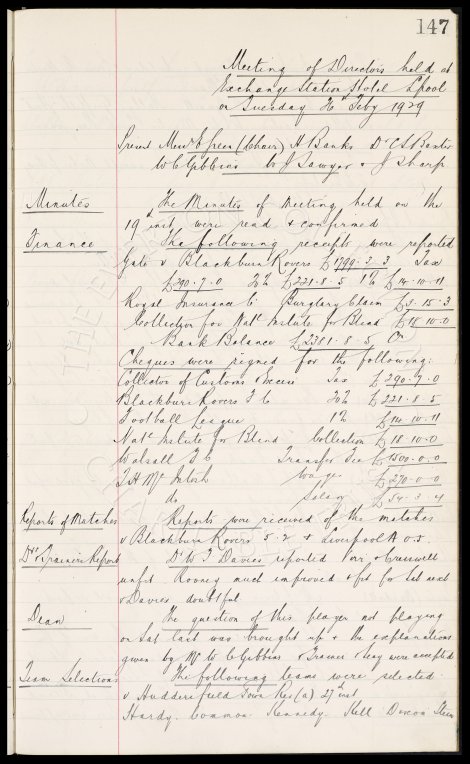 147
Meeting of Directors held at
Exchange Station Hotel L'pool
on Tuesday 26th Feby 1929
Present Messrs E Green (Chair) H Banks Dr C S Baxter
W C Gibbins W J Sawyer & J Sharp
Minutes
The Minutes of meeting held on the
19th inst were read & confirmed
Finance
The following receipts were reported
Gate v Blackburn Rovers £1799-3-3 Tax
£290-7-0 20% £221-8-5 1% £14-10-11
Royal Insurance Co Burglary Claim £3-15-3
Collection for Natl Instute for Blind £18-10-0
Bank Balance £2381-8-5 Cr
Cheques were signed for the following:
Collector of Customs & Excise Tax £290-7-0
Blackburn Rovers F C 20% £221-8-5
Football League 1% £14-10-11
Natl Instute for Blind Collection £18-10-0
Walsall F C Transfer Fee £1500-0-0
T. H. McIntosh Wage £270-0-0
do Salary £54-3-4
Reports of Matches
Reports were received of the matches
v Blackburn Rovers 5.2 & Liverpool A 0.5.
Drs & Trainers Report
Dr W J Davies reported Parr & Cresswell
unfit Rooney much improved & fit for Sat next
& Davies doubtful
Dean
The question of this player not playing
on Sat last was brought up & the explanations
given by Mr W C Gibbins & Trainer were accepted
Team Selections
The following teams were selected
v Huddersfield Town Res (a) 27th inst
Hardy. Common Kennedy Kell Dixon Stein